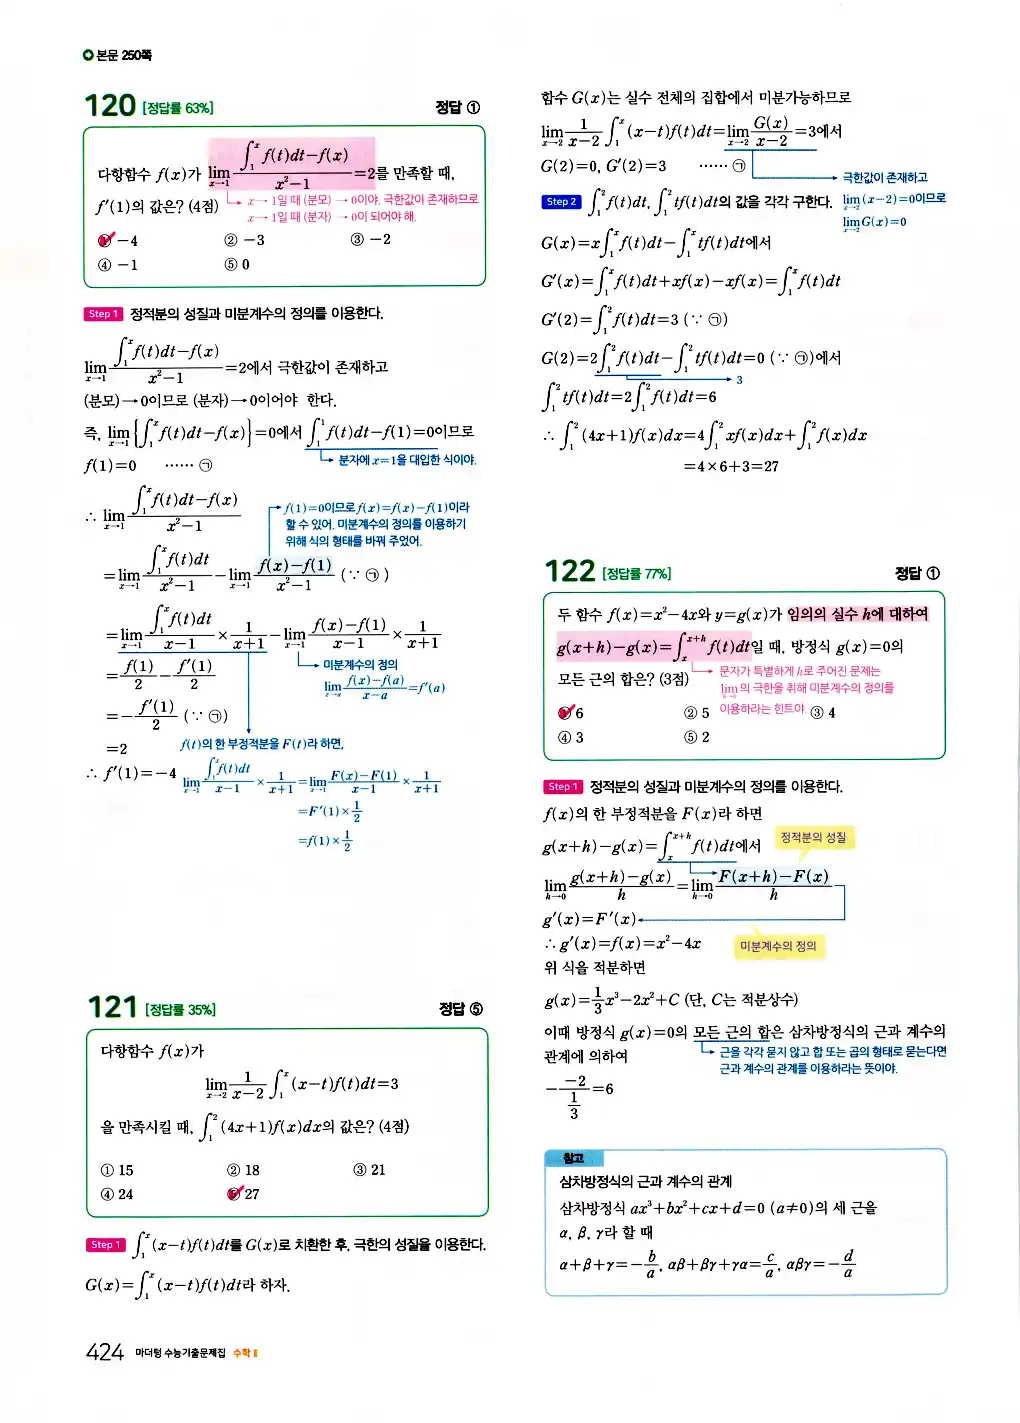 본문 250쪽
120 [정답률 63%] 정답 ①
다항함수 f(x)가 lim_{x→1} \frac{∫_1^x f(t)dt−f(x)}{x²−1}=2를 만족할 때,
f′(1)의 값은? (4점)
x→1일 때 (분모)→0이야. 극한값이 존재하므로
x→1일 때 (분자)→0이 되어야 해.
① −4 ② −3 ③ −2
④ −1 ⑤ 0
Step 1 정적분의 성질과 미분계수의 정의를 이용한다.
lim_{x→1} \frac{∫_1^x f(t)dt−f(x)}{x²−1}=2에서 극한값이 존재하고
(분모)→0이므로 (분자)→0이어야 한다.
즉, lim_{x→1}{∫_1^x f(t)dt−f(x)}=0에서 ∫_1^1 f(t)dt−f(1)=0이므로
f(1)=0 ······ ㉠
분자에 x=1을 대입한 식이야.
∴ lim_{x→1} \frac{∫_1^x f(t)dt−f(x)}{x²−1}
f(1)=0이므로 f(x)=f(x)−f(1)이라
할 수 있어. 미분계수의 정의를 이용하기
위해 식의 형태를 바꿔 주었어.
=lim_{x→1} \frac{∫_1^x f(t)dt}{x²−1}−lim_{x→1} \frac{f(x)−f(1)}{x²−1} (∵ ㉠)
=lim_{x→1} \frac{∫_1^x f(t)dt}{x−1}×\frac{1}{x+1}−lim_{x→1} \frac{f(x)−f(1)}{x−1}×\frac{1}{x+1}
=\frac{f(1)}{2}−\frac{f′(1)}{2}
미분계수의 정의
lim_{x→a} \frac{f(x)−f(a)}{x−a}=f′(a)
=−\frac{f′(1)}{2} (∵ ㉠)
=2
f(t)의 한 부정적분을 F(t)라 하면,
∴ f′(1)=−4
lim_{x→1} \frac{∫_1^x f(t)dt}{x−1}×\frac{1}{x+1}=lim_{x→1} \frac{F(x)−F(1)}{x−1}×\frac{1}{x+1}
=F′(1)×\frac{1}{2}
=f(1)×\frac{1}{2}
121 [정답률 35%] 정답 ⑤
다항함수 f(x)가
lim_{x→2} \frac{1}{x−2}∫_1^x (x−t)f(t)dt=3
을 만족시킬 때, ∫_1^2 (4x+1)f(x)dx의 값은? (4점)
① 15 ② 18 ③ 21
④ 24 ⑤ 27
Step 1 ∫_1^x (x−t)f(t)dt를 G(x)로 치환한 후, 극한의 성질을 이용한다.
G(x)=∫_1^x (x−t)f(t)dt라 하자.
함수 G(x)는 실수 전체의 집합에서 미분가능하므로
lim_{x→2} \frac{1}{x−2}∫_1^x (x−t)f(t)dt=lim_{x→2} \frac{G(x)}{x−2}=3에서
G(2)=0, G′(2)=3 ······ ㉠
극한값이 존재하고
lim_{x→2}(x−2)=0이므로
lim_{x→2}G(x)=0
Step 2 ∫_1^2 f(t)dt, ∫_1^2 tf(t)dt의 값을 각각 구한다.
G(x)=x∫_1^x f(t)dt−∫_1^x tf(t)dt에서
G′(x)=∫_1^x f(t)dt+xf(x)−xf(x)=∫_1^x f(t)dt
G′(2)=∫_1^2 f(t)dt=3 (∵ ㉠)
G(2)=2∫_1^2 f(t)dt−∫_1^2 tf(t)dt=0 (∵ ㉠)에서
3
∫_1^2 tf(t)dt=2∫_1^2 f(t)dt=6
∴ ∫_1^2 (4x+1)f(x)dx=4∫_1^2 xf(x)dx+∫_1^2 f(x)dx
=4×6+3=27
122 [정답률 77%] 정답 ①
두 함수 f(x)=x²−4x와 y=g(x)가 임의의 실수 h에 대하여
g(x+h)−g(x)=∫_x^{x+h} f(t)dt일 때, 방정식 g(x)=0의
모든 근의 합은? (3점)
문자가 특별하게 h로 주어진 문제는
lim_{h→0}의 극한을 취해 미분계수의 정의를
이용하라는 힌트야.
① 6 ② 5 ③ 4
④ 3 ⑤ 2
Step 1 정적분의 성질과 미분계수의 정의를 이용한다.
f(x)의 한 부정적분을 F(x)라 하면
g(x+h)−g(x)=∫_x^{x+h} f(t)dt에서
정적분의 성질
lim_{h→0} \frac{g(x+h)−g(x)}{h}=lim_{h→0} \frac{F(x+h)−F(x)}{h}
g′(x)=F′(x)
∴ g′(x)=f(x)=x²−4x
미분계수의 정의
위 식을 적분하면
g(x)=\frac{1}{3}x³−2x²+C (단, C는 적분상수)
이때 방정식 g(x)=0의 모든 근의 합은 삼차방정식의 근과 계수의
관계에 의하여
근을 각각 묻지 않고 합 또는 곱의 형태로 묻는다면
근과 계수의 관계를 이용하라는 뜻이야.
−\frac{−2}{\frac{1}{3}}=6
참고
삼차방정식의 근과 계수의 관계
삼차방정식 ax³+bx²+cx+d=0 (a≠0)의 세 근을
α, β, γ라 할 때
α+β+γ=−\frac{b}{a}, αβ+βγ+γα=\frac{c}{a}, αβγ=−\frac{d}{a}
424 마더텅 수능기출문제집 수학 Ⅱ